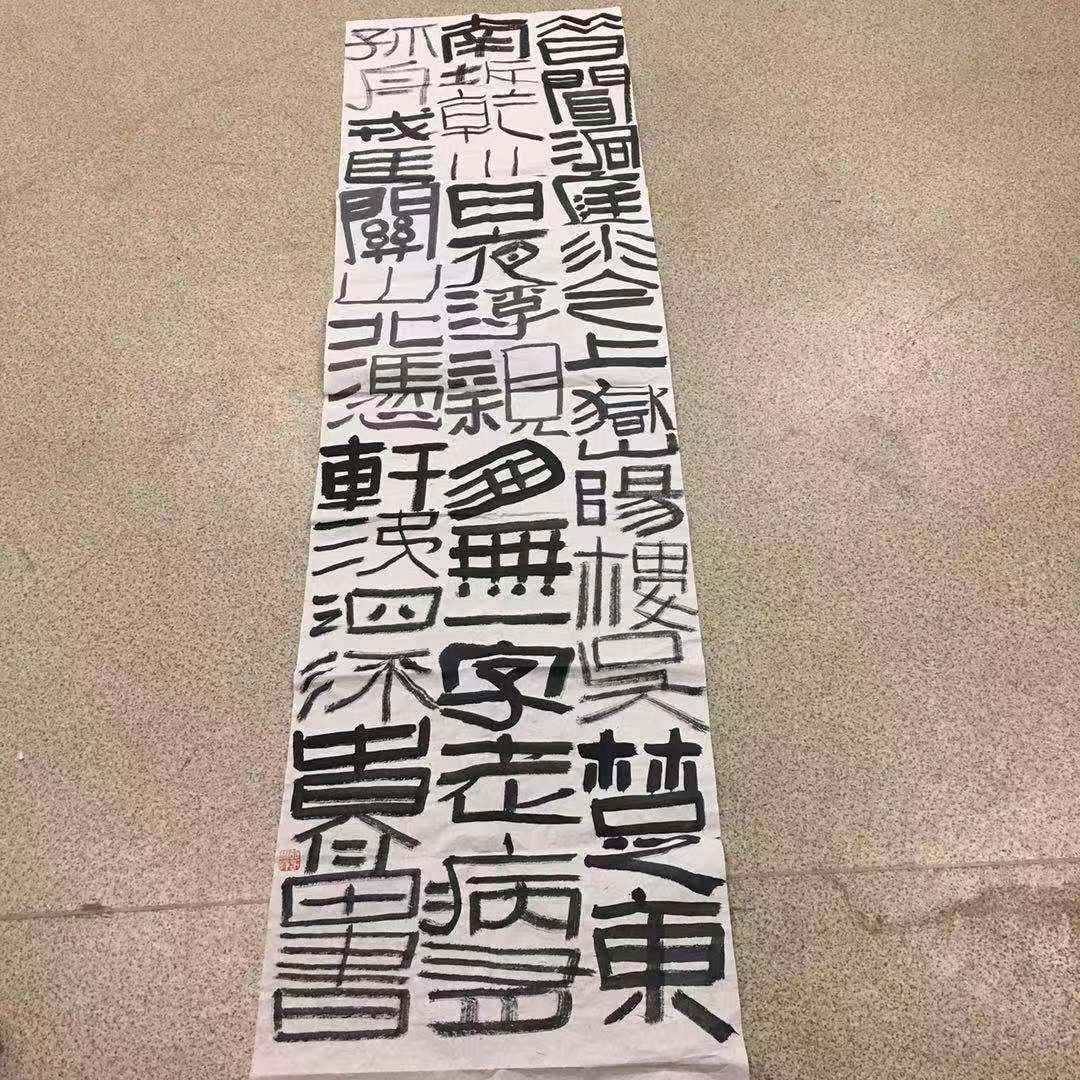 昔聞洞庭水今上嶽陽樓吳楚東
南坼乾川日夜浮親朋無一字老病有
孤舟戎馬關山北憑軒涕泗流貴書